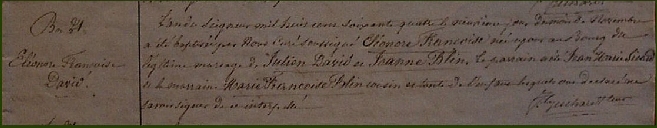 Bn 21
Eléonore Françoise
David.
L'an du seigneur mil huit cent soixante quatre le neuvième jour du mois de Novembre
a été baptisée par Nous Curé soussigné Eléonore Françoise née que au bourg du
légitime mariage de Julien David et Jeanne Blin. Le parrain a été Jean Marie Sicard
et la marraine Marie Françoise Blin cousin et tante de l'enfant lesquels ont déclaré ne
savoir signer de ce interpellés